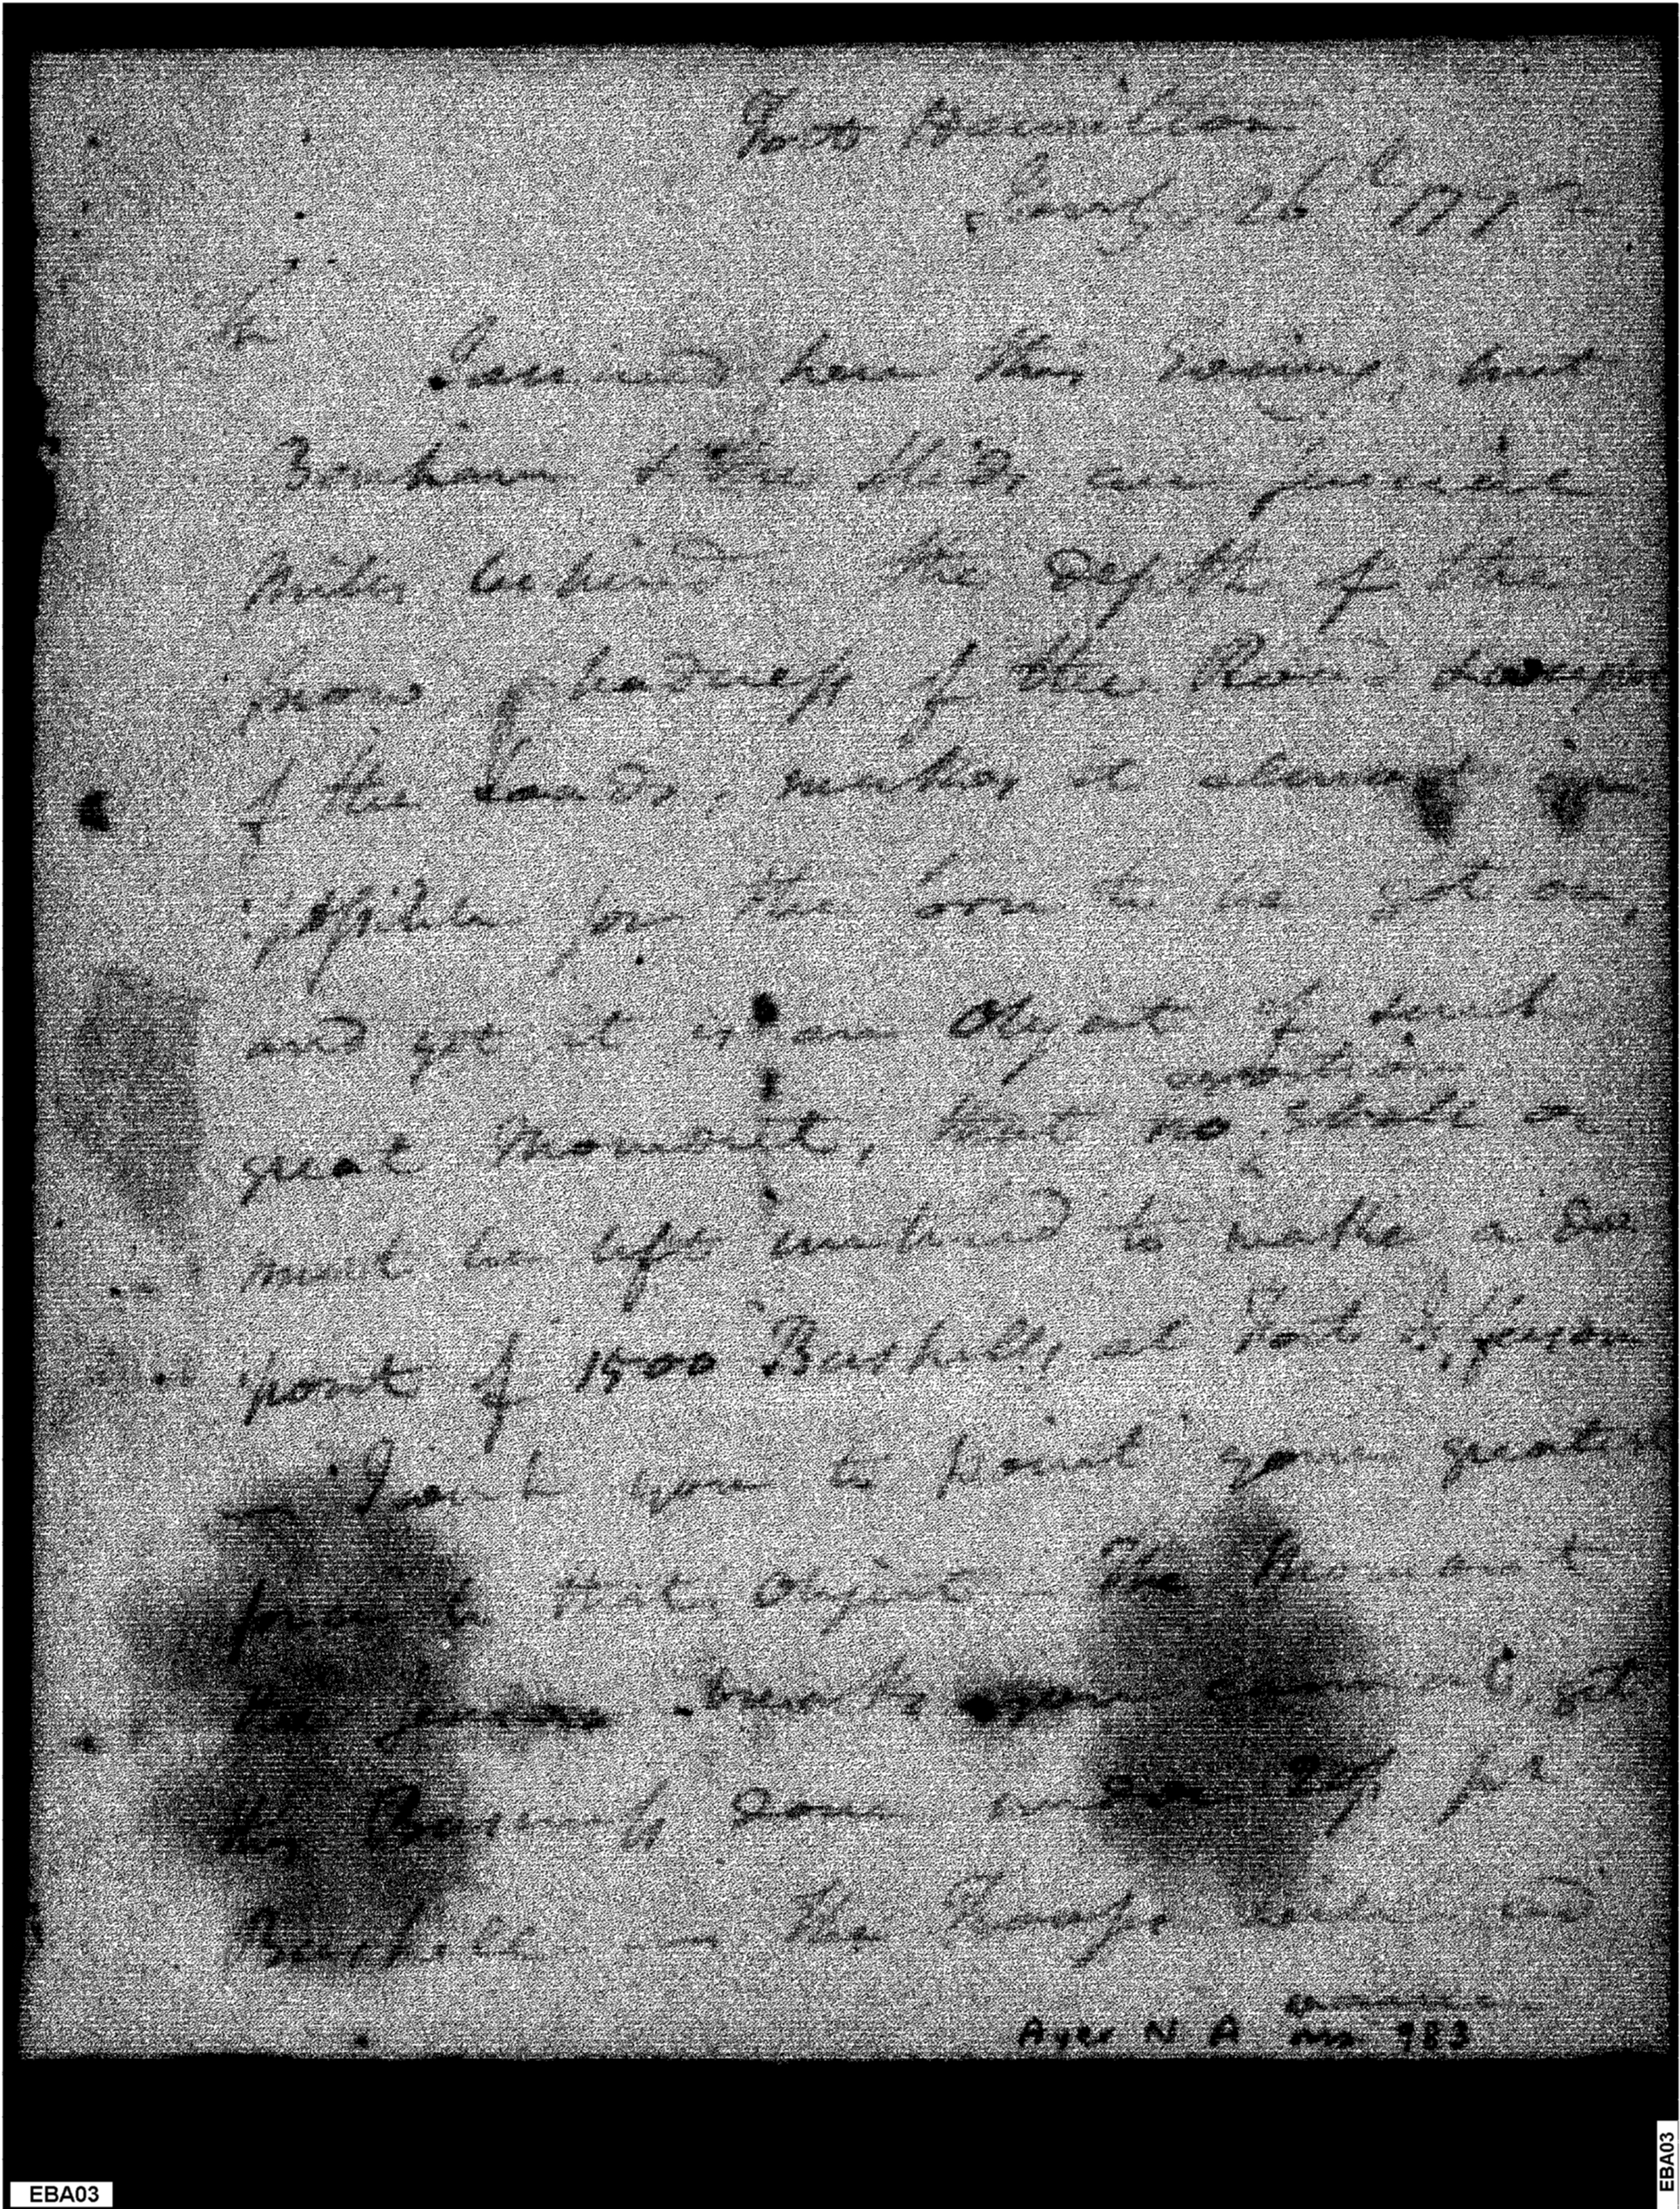 Fort Hamilton
Jany. 26th 179
Sir
I arrived here this Evening, but
Bonham & the Sleds, are
Miles behind the Depth of the
Snow, badness of the Road &
of the Loads, makes it almost im
:possible for the Corn to be got on,
and yet it is an Object of such
exertion
great Moment, that no shall or
must be left untried to make a De
posit of 1500 Bushells at Fort Jefferson
I wish you to point your greatest
force to that Object – The Moment
the breaks your
this Business done under per
Bushell — The Troops
Ayer N A ms 983
EBA03
EBA03